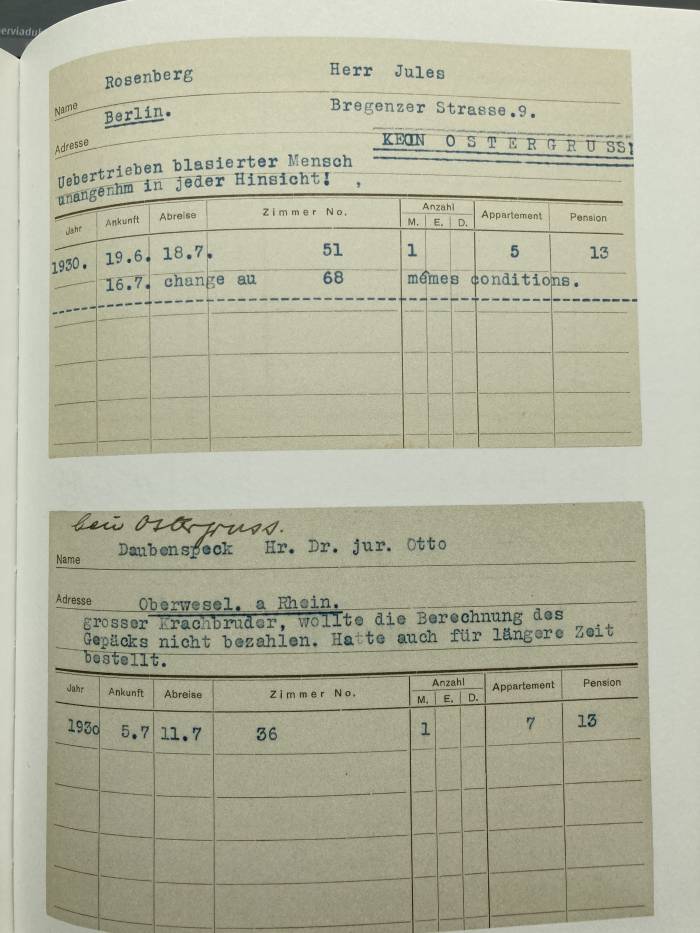 erviaduk
Rosenberg Herr Jules
Name
Berlin. Bregenzer Strasse.9.
Adresse
KEIN OSTERGRUSS!
Uebertrieben blasierter Mensch
unangenhm in jeder Hinsicht! ,
Jahr Ankunft Abreise Zimmer No. Anzahl Appartement Pension
M. E. D.
1930. 19.6. 18.7. 51 1 5 13
16.7. change au 68 mêmes conditions.
kein Ostergruss.
Name Daubenspeck Hr. Dr. jur. Otto
Adresse Oberwesel. a Rhein.
grosser Krachbruder, wollte die Berechnung des
Gepäcks nicht bezahlen. Hatte auch für längere Zeit
bestellt.
Jahr Ankunft Abreise Zimmer No. Anzahl Appartement Pension
M. E. D.
1930 5.7 11.7 36 1 7 13